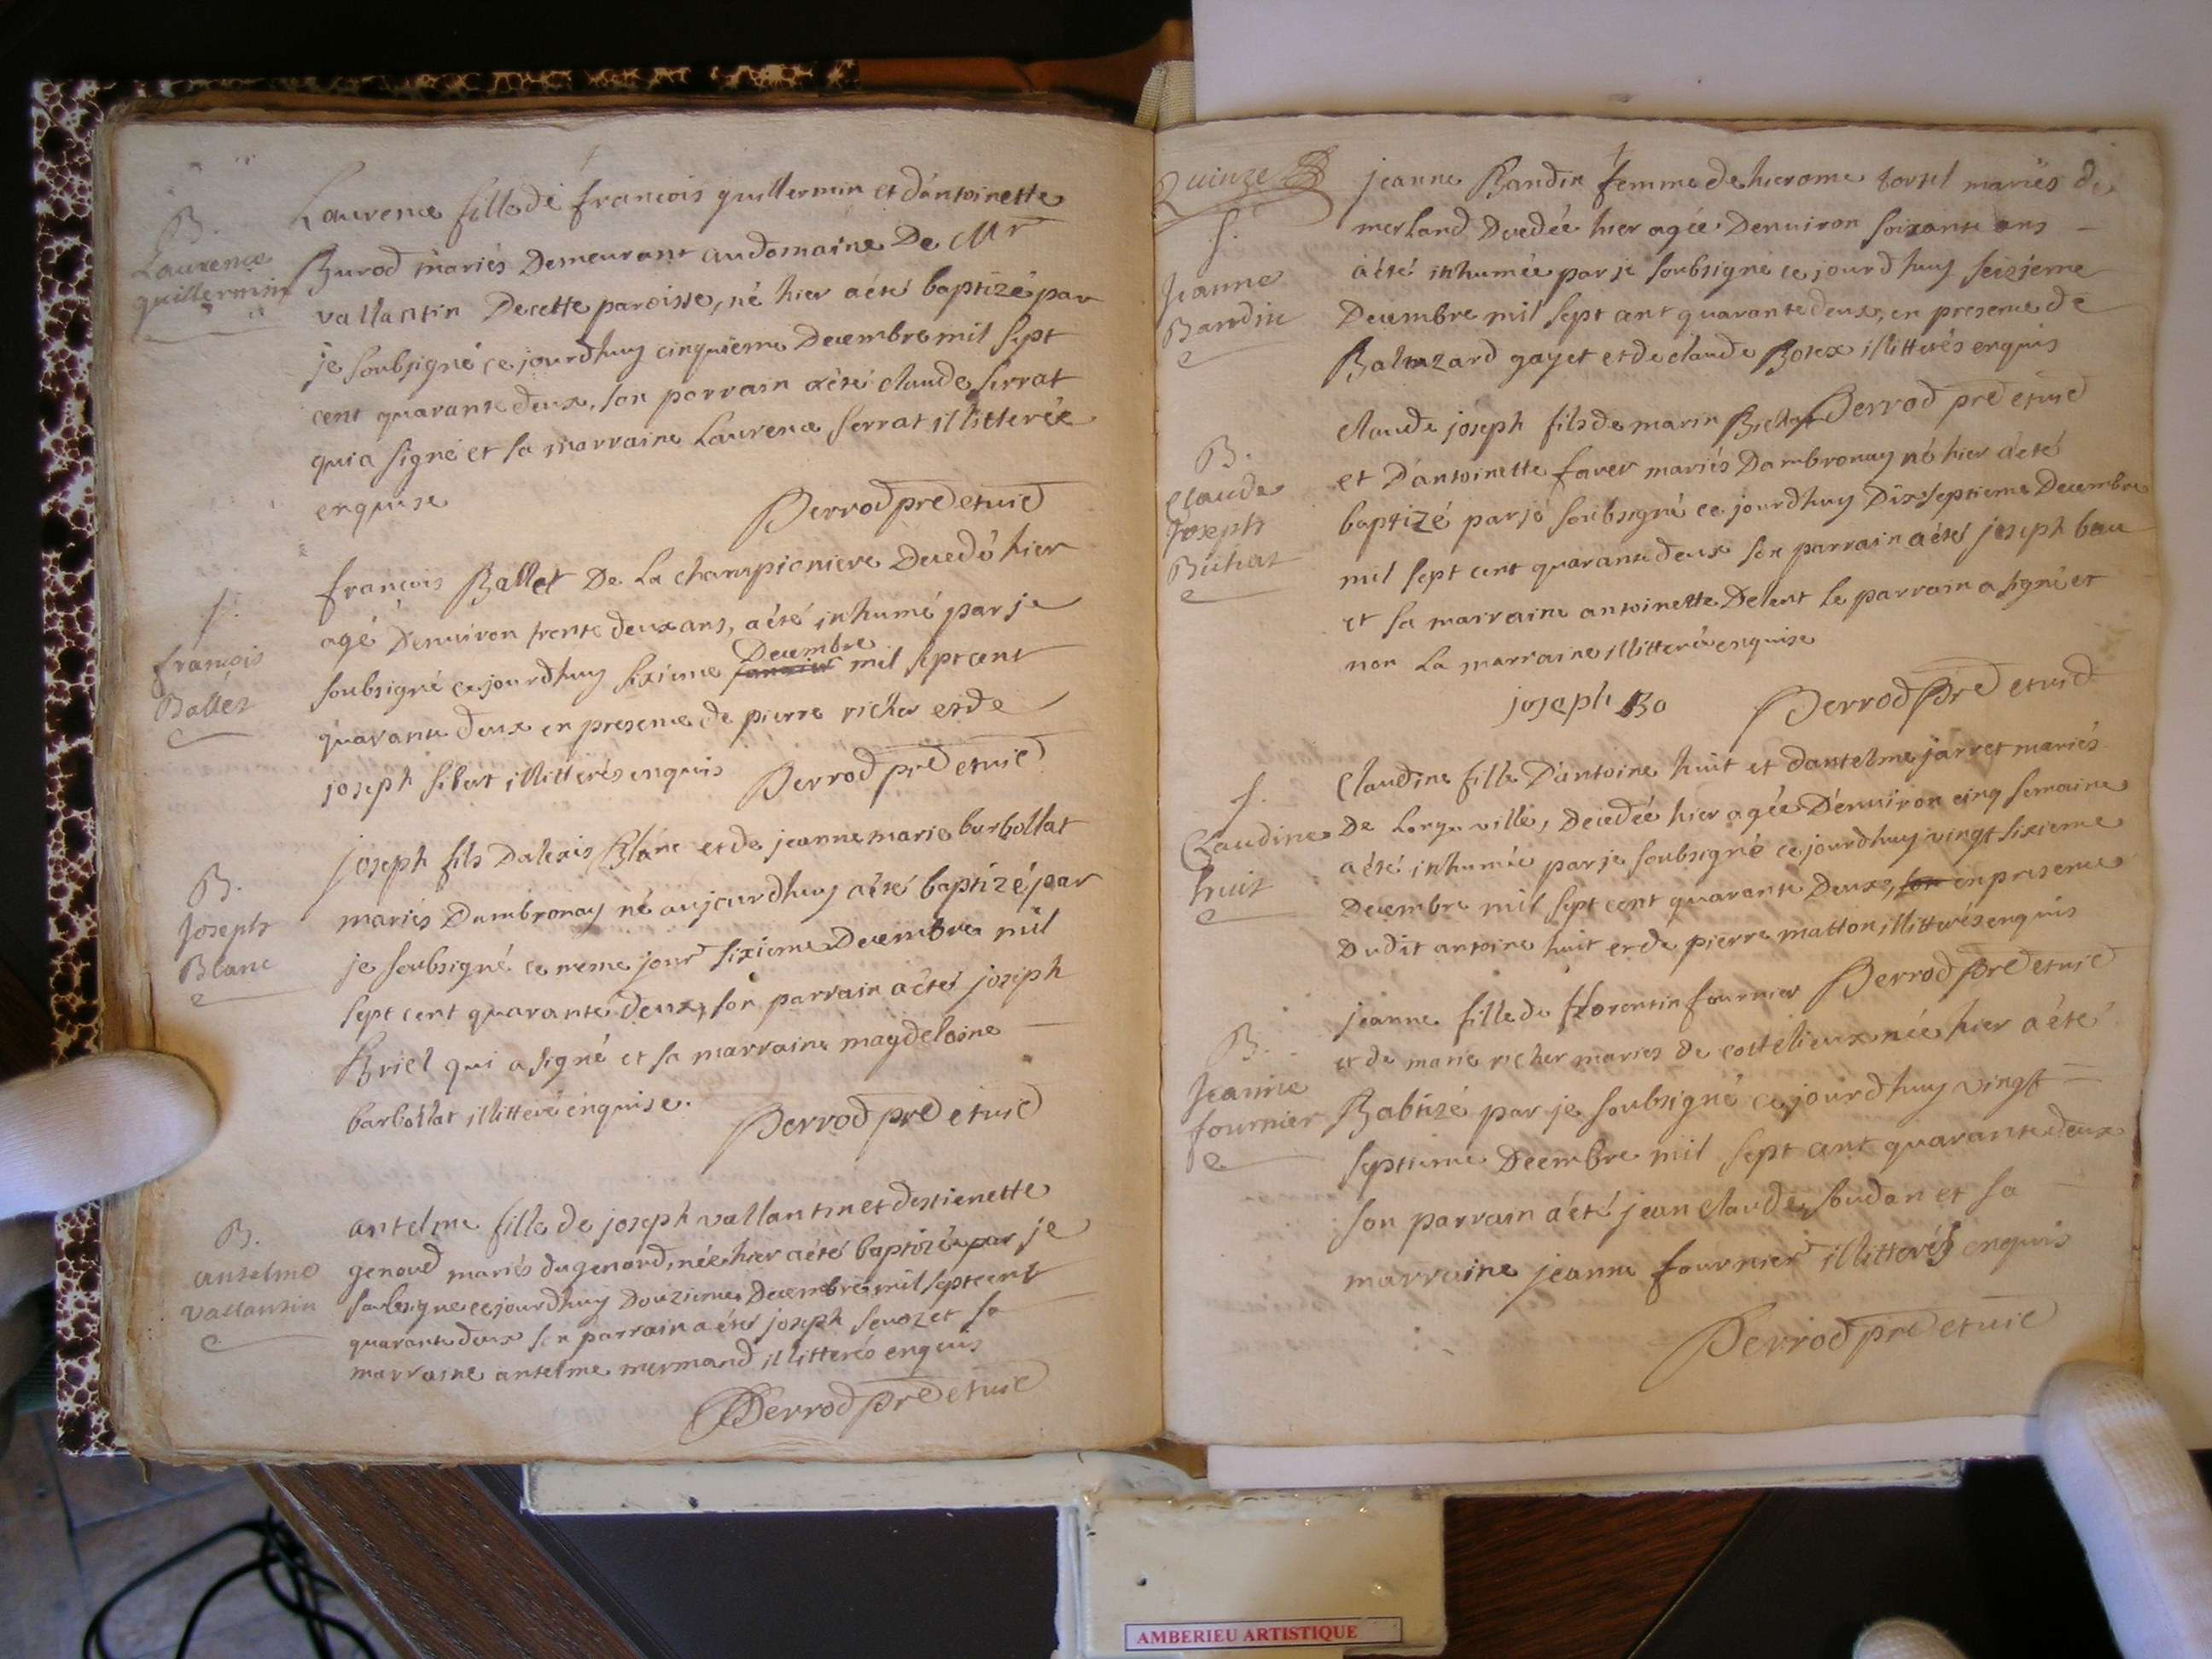 B.
Laurence
guillermin
Laurence fille de françois guillermin et d'antoinette
Burod mariés Demeurant au domaine De Mr
vallantin De cette paroisse, né hier a été baptizé par
je soubsigné ce jourdhuy cinquieme Decembre mil sept
cent quarante deux, son parrain a été claude serrat
qui a signé et sa marraine Laurence serrat illitterée
enquise
Perrod pre et vic
f.
françois
Ballet
françois Ballet De La championiere Decedé hier
agé Denviron trente deux ans, a été inhumé par je
soubsigné ce jourdhuy sixieme Decembre mil sept cent
quarante deux en presence de pierre richer et de
joseph sibert illitterés enquis Perrod pre et vic
B.
Joseph
Blanc
joseph fils Dalexis Blanc et de jeanne marie barbollat
mariés Dambronay né aujourdhuy a été baptizé par
je soubsigné ce meme jour sixieme Decembre mil
sept cent quarante deux, son parrain a été joseph
Briel qui a signé et sa marraine magdelaine
barbollat illitteré enquise. Perrod pre et vic
B.
antelme
vallantin
antelme fille de joseph vallantin et destienette
genoud mariés du genoud, née hier a été baptizée par je
soubsigne ce jourdhuy Douzieme Decembre mil sept cent
quarante deux son parrain a été joseph sevoz et sa
marraine antelme mermand illitterés enquis
Perrod pre et vic
Quinze
f.
Jeanne
Bandin
jeanne Bandin femme de hierome torsel mariés de
merland Decedée hier agée Denviron soixante ans
a été inhumée par je soubsigné ce jourdhuy seizieme
Decembre mil sept cent quarante deux, en presence de
Baltazard gayet et de claude Botex illitterés enquis
Perrod pre et vic
B.
Claude
Joseph
Bichat
claude joseph fils de marin Bichat
et D'antoinette faver mariés Dambronay né hier a été
baptizé par je soubsigné ce jourdhuy Dix septieme Decembre
mil sept cent quarante deux son parrain a été joseph bau
et sa marraine antoinette Delent le parrain a signé et
non La marraine illitteré enquise
joseph Bo Perrod Pre et vic
f.
Claudine
huit
Claudine fille D'antoine huit et dantelme jarret mariés
De Longeville, Decedée hier agée D'environ cinq semaine
a été inhumée par je soubsigné ce jourdhuy vingt sixieme
Decembre mil sept cent quarante Deux, son en presence
Dudit antoine huit et de pierre matton illitterés enquis
Perrod Pre et vic
B.
Jeanne
fournier
jeanne fille de florentin fournier
et de marie richer maries de costelieux née hier a été
Babtizé par je soubsigné ce jourdhuy vingt
septieme Decembre mil sept cent quarante deux
son parrain a été jean claude soudan et sa
marraine jeanne fournier illitterés enquis
Perrod pre et vic
AMBERIEU ARTISTIQUE